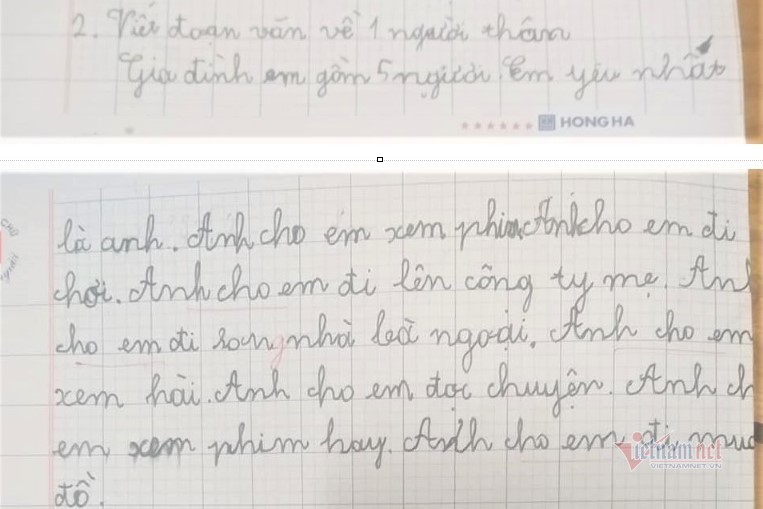 2. Viết đoạn văn về 1 người thân
Gia đình em gồm 5 người. Em yêu nhất
HONG HA
là anh. Anh cho em xem phim. Anh cho em đi
chơi. Anh cho em đi lên công ty mẹ. Anh
cho em đi sang nhà bà ngoại. Anh cho em
xem hài. Anh cho em đọc chuyện. Anh ch
em xem phim hay. Anh cho em đi mua
đồ.
vietnamnet
VIETNAMNET.VN